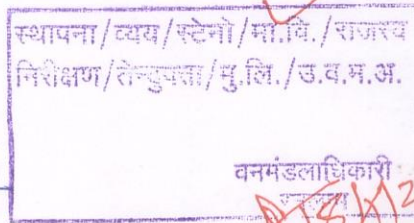 स्थापना/व्यय/स्टेनो/मा.चि./राजस्व
निरीक्षण/तेन्दुपत्ता/मु.लि./उ.व.म.अ.
वनमंडलाधिकारी